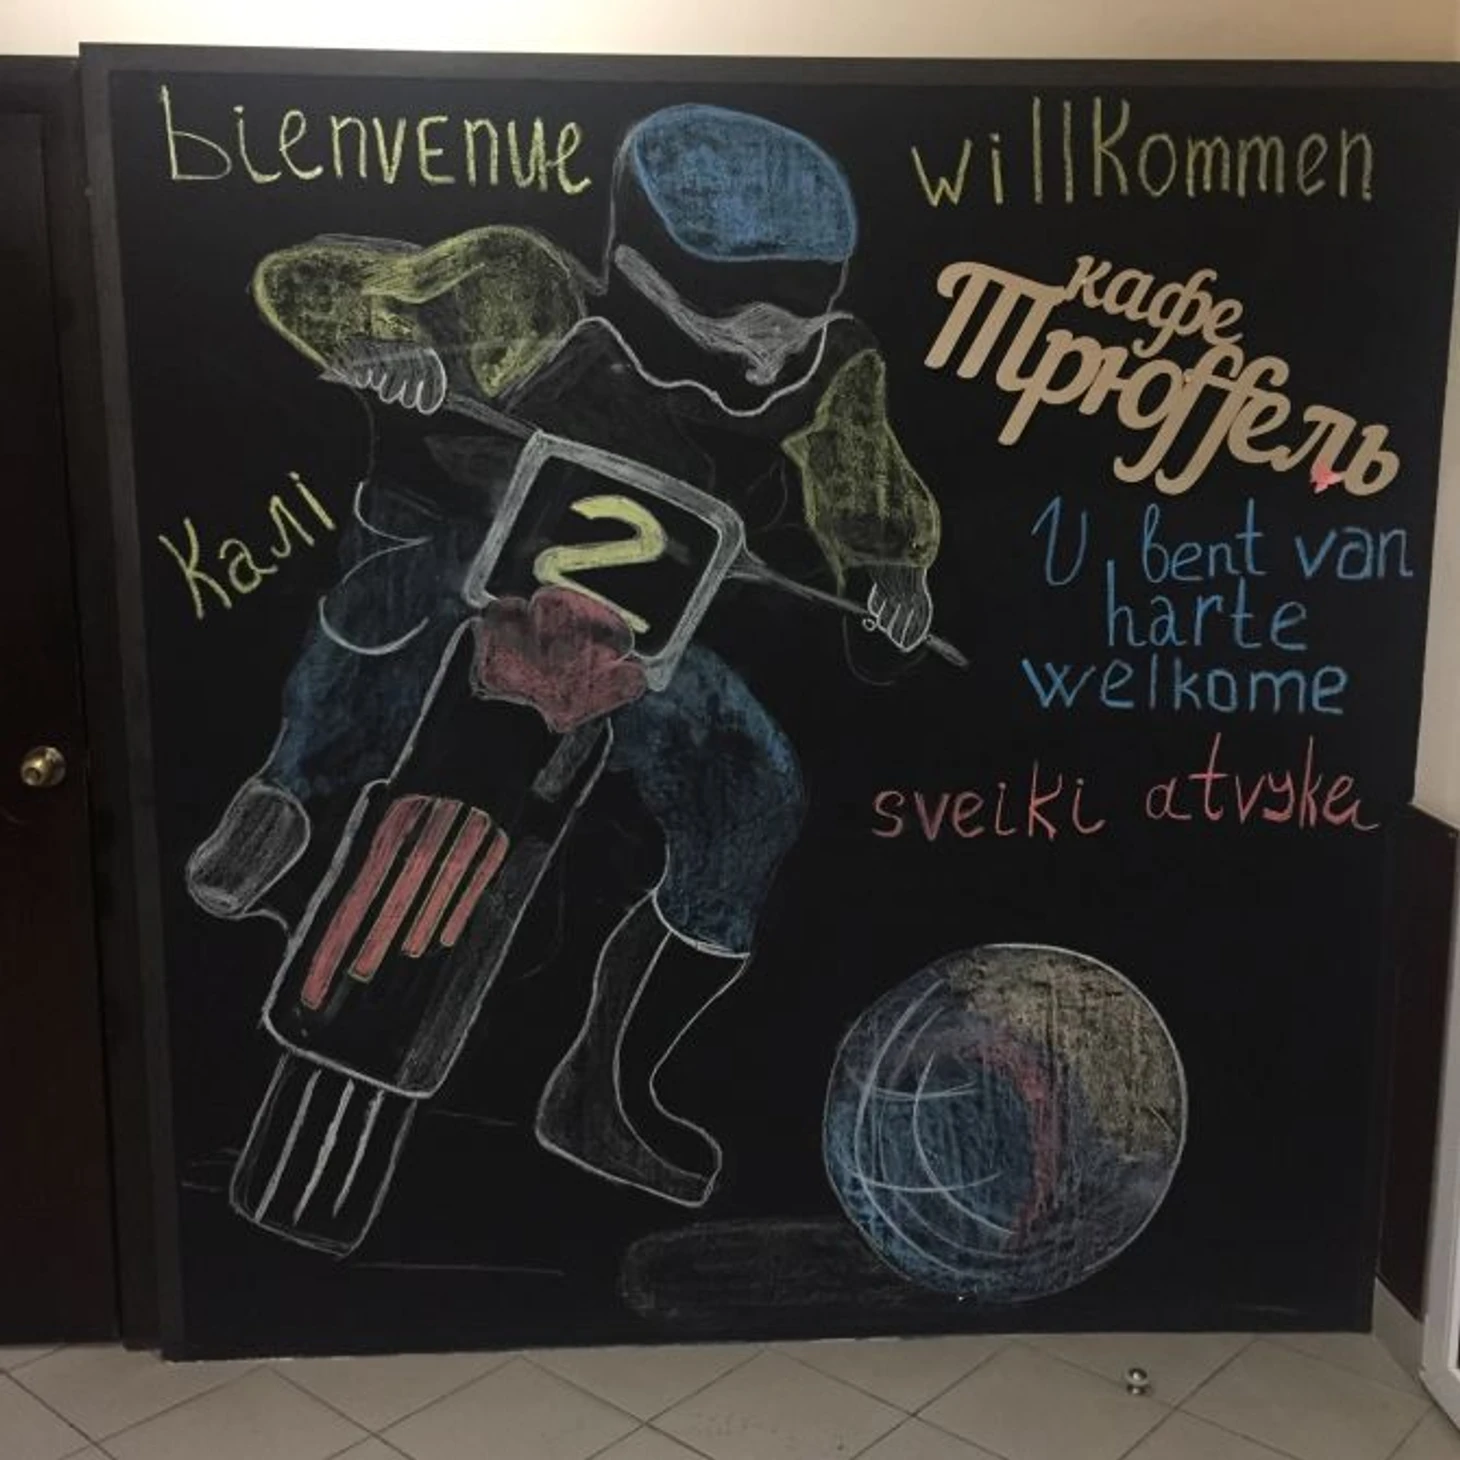 bienvenue
willkommen
кафе
Трюффель
калі
U bent van
harte
welkome
sveiki atvyke
2